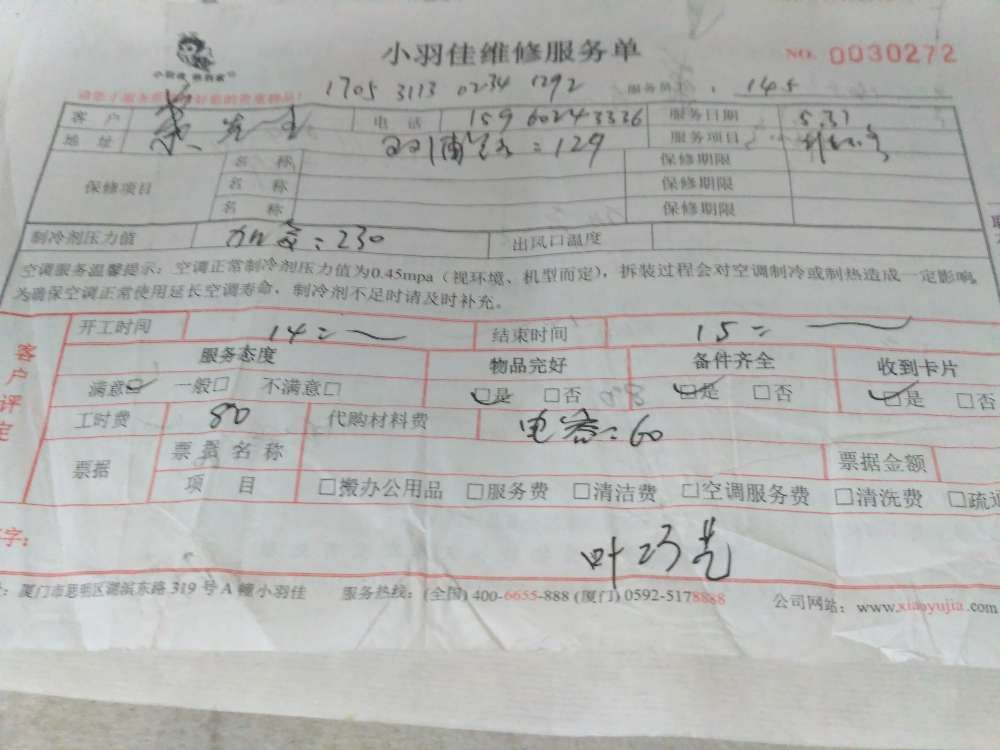 小羽佳维修服务单
NO. 0030272
1705 3113 0234 1292 服务员工: 145
客户 先生 电话 15960243336 服务日期 5.31
地址 服务项目
保修项目 名称 保修期限
名称 保修期限
名称 保修期限
制冷剂压力值 : 230 出风口温度
空调服务温馨提示: 空调正常制冷剂压力值为0.45mpa（视环境、机型而定），拆装过程会对空调制冷或制热造成一定影响。
为确保空调正常使用延长空调寿命，制冷剂不足时请及时补充。
客户评定
开工时间 14 结束时间 15
服务态度 物品完好 备件齐全 收到卡片
满意☑ 一般□ 不满意□ ☑是 □否 ☑是 □否 ☑是 □否
工时费 80 代购材料费 电容: 60
票据 票据名称 票据金额
项目 □搬办公用品 □服务费 □清洁费 □空调服务费 □清洗费 □疏通
字:
叶巧芸
厦门市思明区湖滨东路319号A幢小羽佳 服务热线: (全国) 400-6655-888 (厦门) 0592-5178888 公司网站: www.xiaoyujia.com